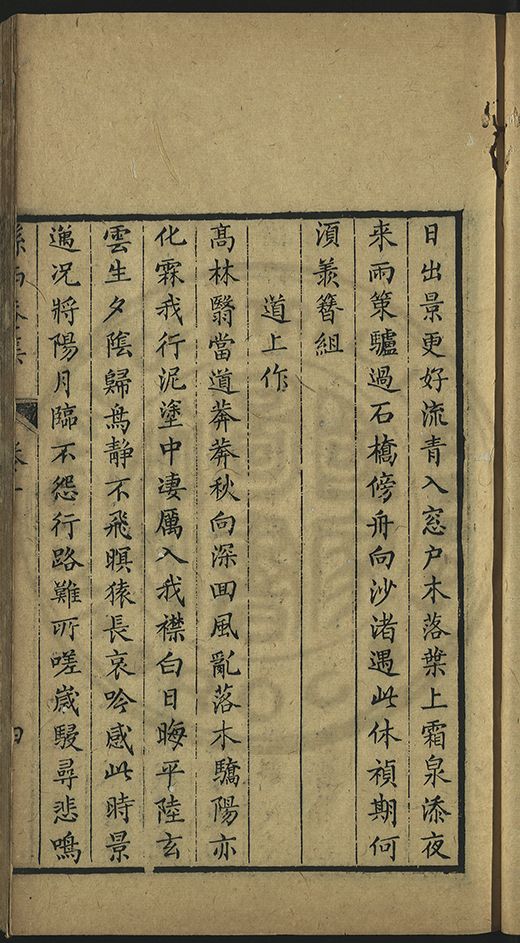 日出景更好流青入窓户木落葉上霜泉添夜
来雨策驢過石橋傍舟向沙渚遇此休禎期何
湏羨簪組
道上作
髙林翳當道莽莽秋向深回風亂落木驕陽亦
化霖我行泥塗中凄厲入我襟白日晦平陸玄
雲生夕陰歸鳥静不飛暝猿長哀吟感此時景
邁况將陽月臨不怨行路難所嗟歳駸尋悲鳴